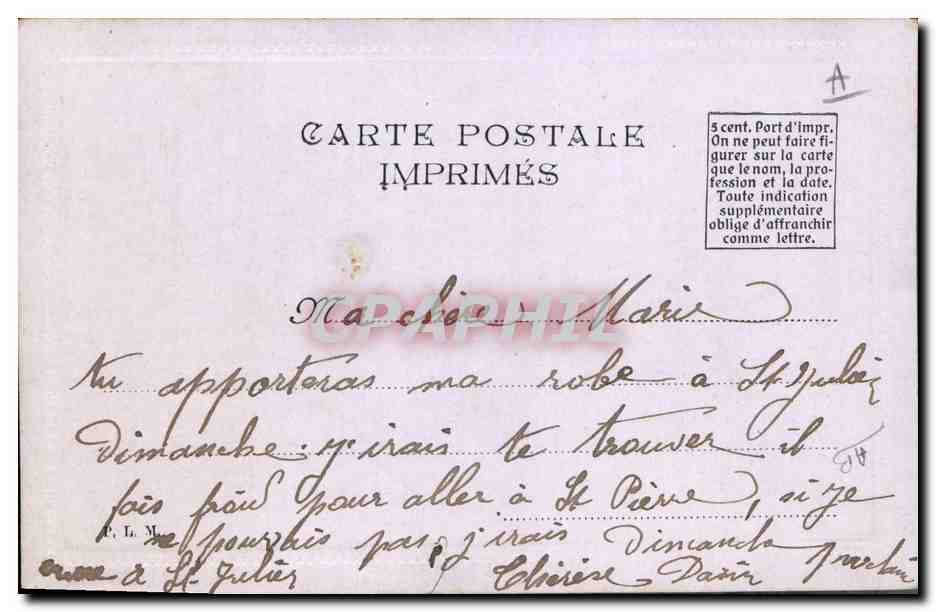 A
CARTE POSTALE
IMPRIMÉS
5 cent. Port d'Impr.
On ne peut faire fi-
gurer sur la carte
que le nom, la pro-
fession et la date.
Toute indication
supplémentaire
oblige d'affranchir
comme lettre.
CPAPHIL
Ma chère Marie
tu apporteras ma robe à St Julien
Dimanche j'irais te trouver il
fais froid pour aller à St Pierre, si je
P. L. M.
ne pourrais pas j'irais Dimanche prochain
à St Julien Thérèse